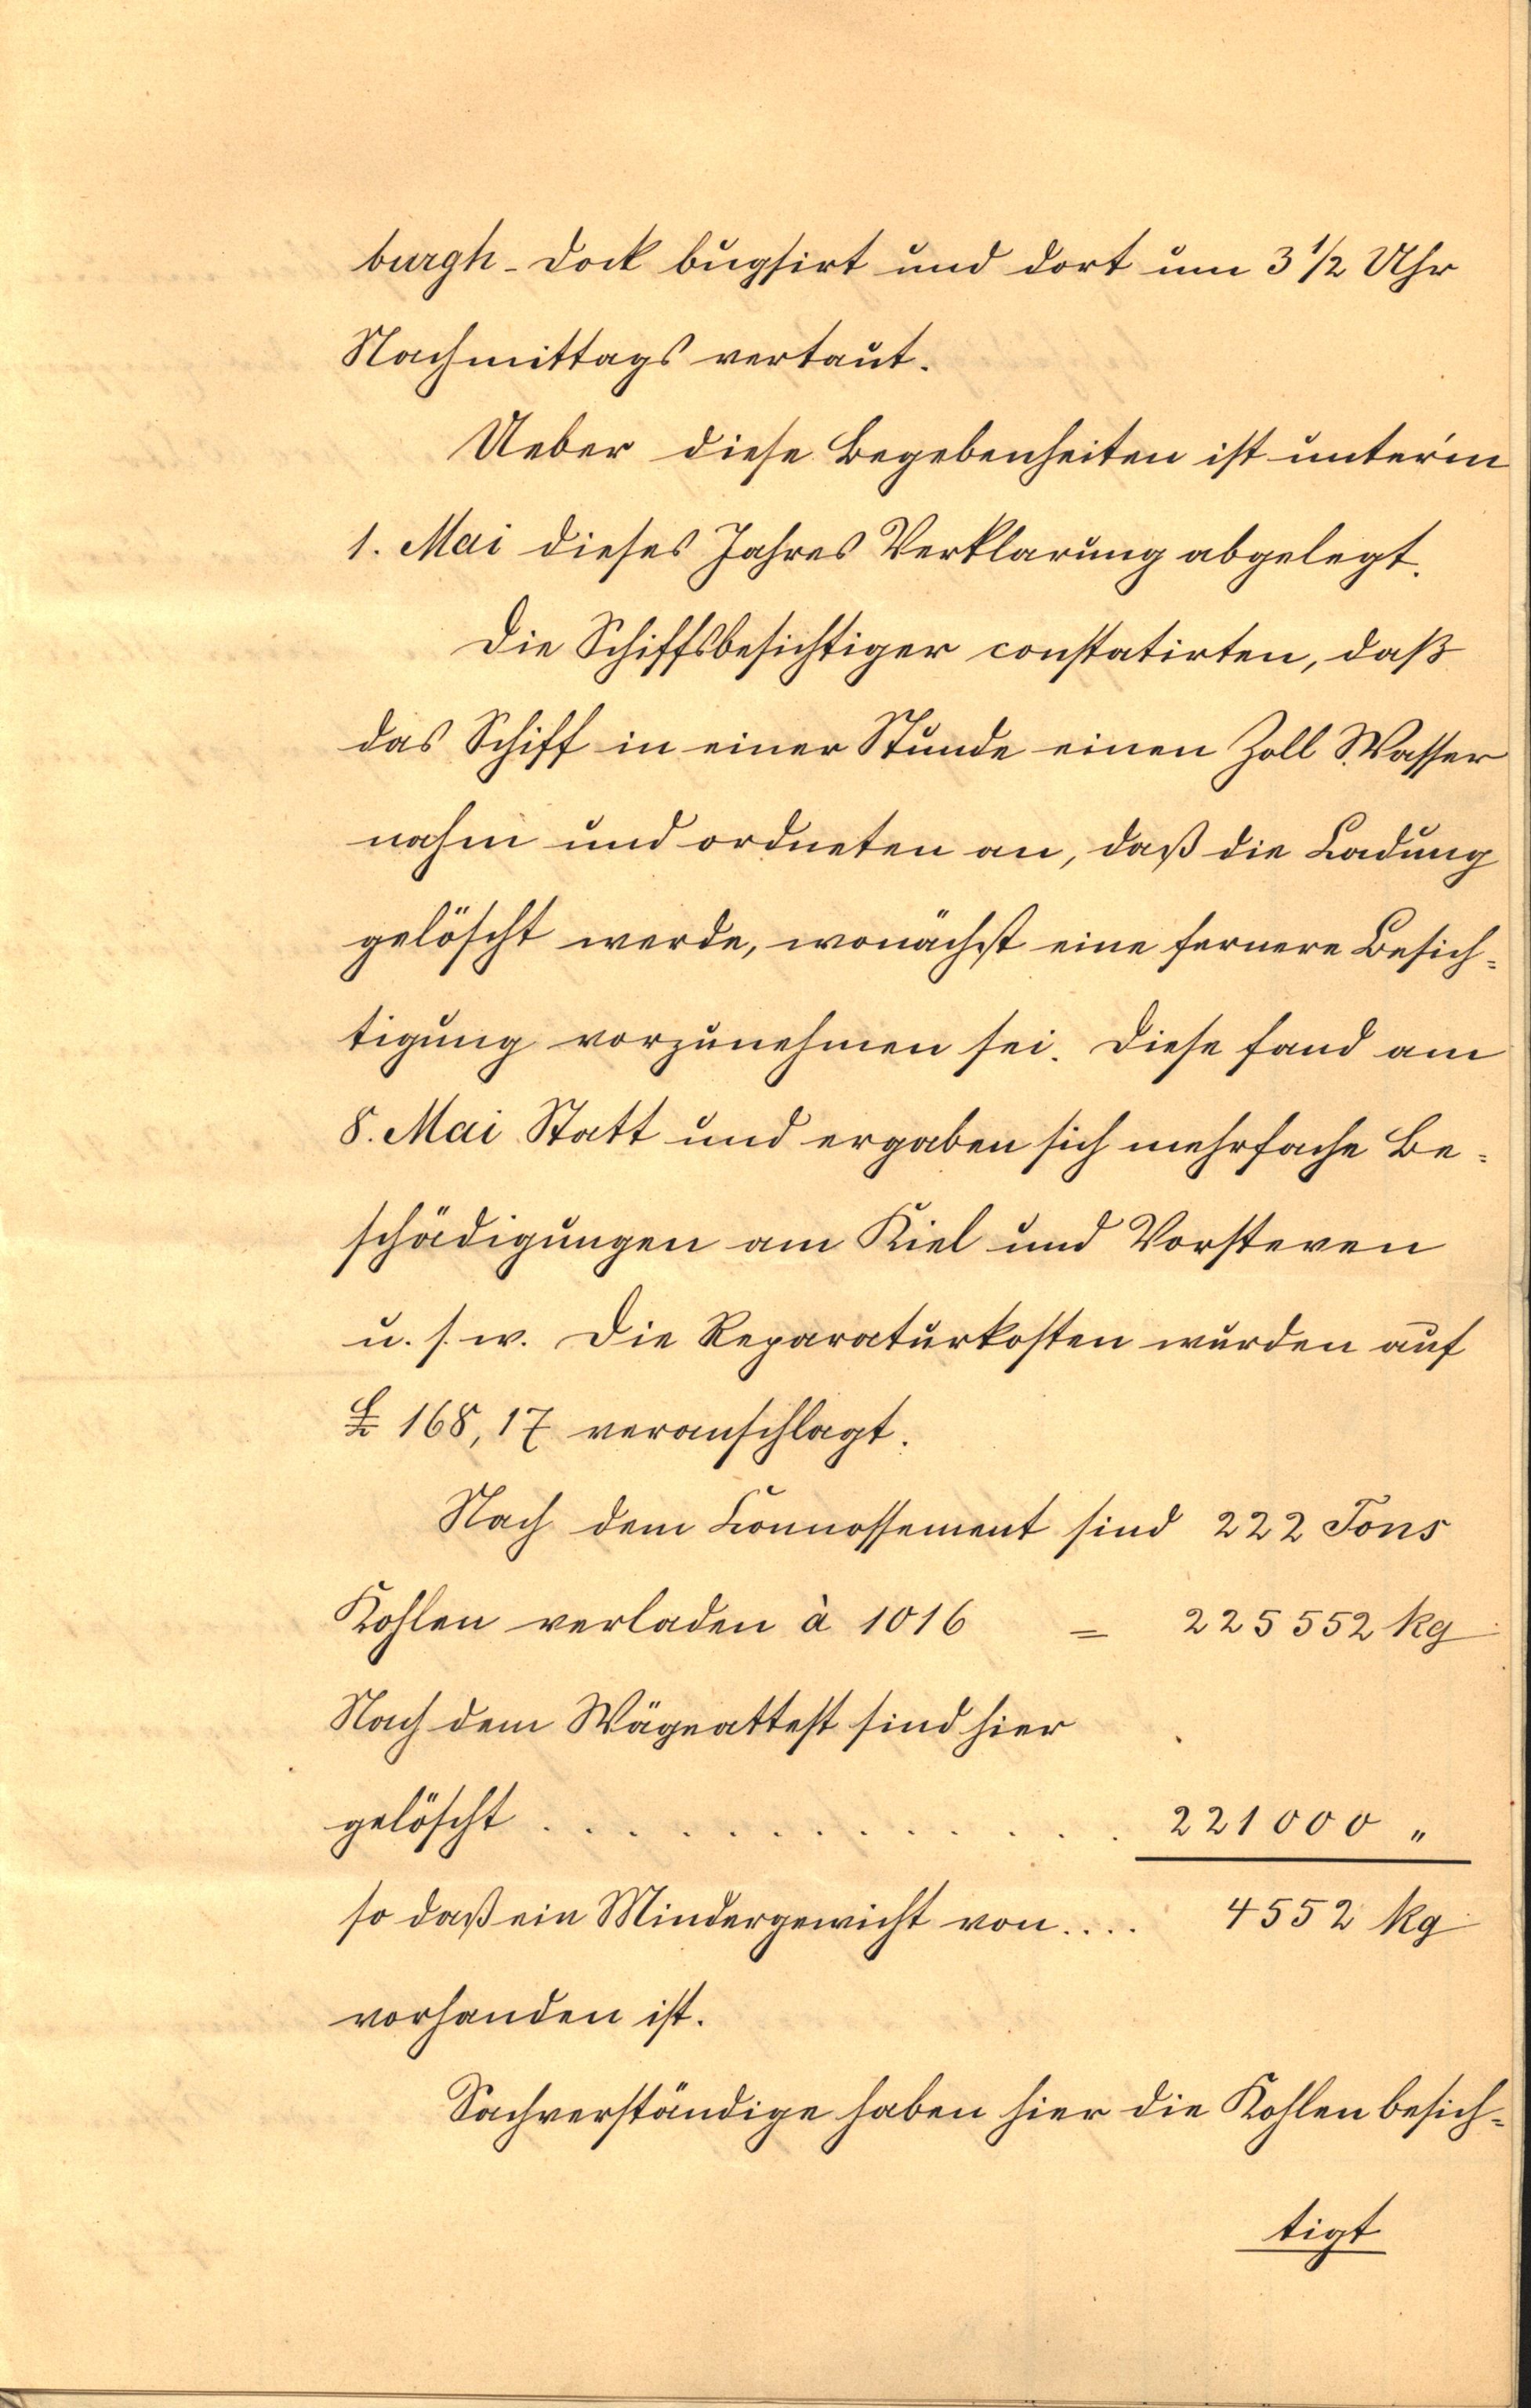 burgh-Dock bugsirt und dort um 3 1/2 Uhr
Nachmittags vertaut.
Ueber diese Begebenheiten ist unter'm
1. Mai dieses Jahres Verklarung abgelegt.
Die Schiffsbesichtiger constatirten, daß
das Schiff in einer Stunde einen Zoll Wasser
nahm und ordneten an, daß die Ladung
gelöscht werde, wonächst eine fernere Besich-
tigung vorzunehmen sei. Diese fand am
8. Mai Statt und ergaben sich mehrfache Be-
schädigungen am Kiel und Vorsteven
u. s. w. Die Reparaturkosten wurden auf
£ 168,17 veranschlagt.
Nach dem Connossement sind 222 Tons
Kohlen verladen à 1016 = 225552 kg
Nach dem Wägeattest sind hier
gelöscht . . . . . . . . . . . . . . . 221000 "
so daß ein Mindergewicht von.... 4552 kg
vorhanden ist.
Sachverständige haben hier die Kohlen besich-
tigt